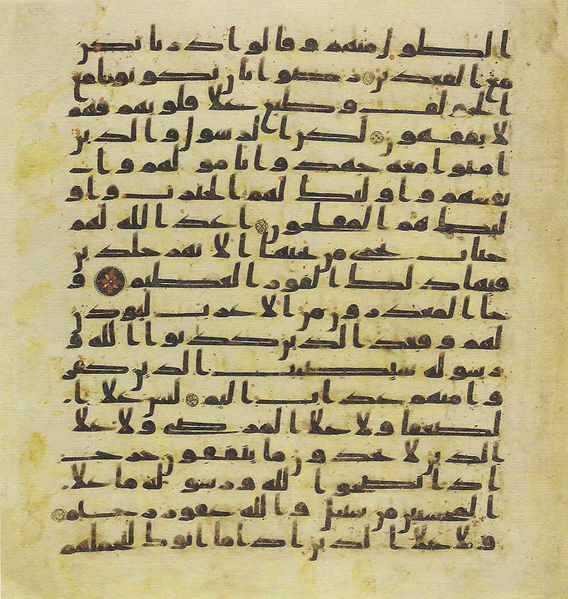 ا الطول منهم وقالوا ذرنا نكن
مع القعدين رضوا بان يكونوا مع
الخولف وطبع على قلوبهم فهم
لا يفقهون لكن الرسول والذين
امنوا معه جهدوا بامولهم وا
نفسهم واوليك لهم الخيرت واو
ليك هم المفلحون اعد الله لهم
جنات تجري من تحتها الانهر خلدين
فيها ذلك الفوز العظيم و
جا المعذرون من الاعرب ليوذن
لهم وقعد الذين كذبوا الله و
رسوله سيصيب الذين كفر
وا منهم عذاب اليم ليس على ا
لضعفا ولا على المرضى ولا على
الذين لا يجدون ما ينفقون حرج
اذا نصحوا لله ورسوله ما على
المحسنين من سبيل والله غفور رحيم
ولا على الذين اذا ما اتوك لتحملهم